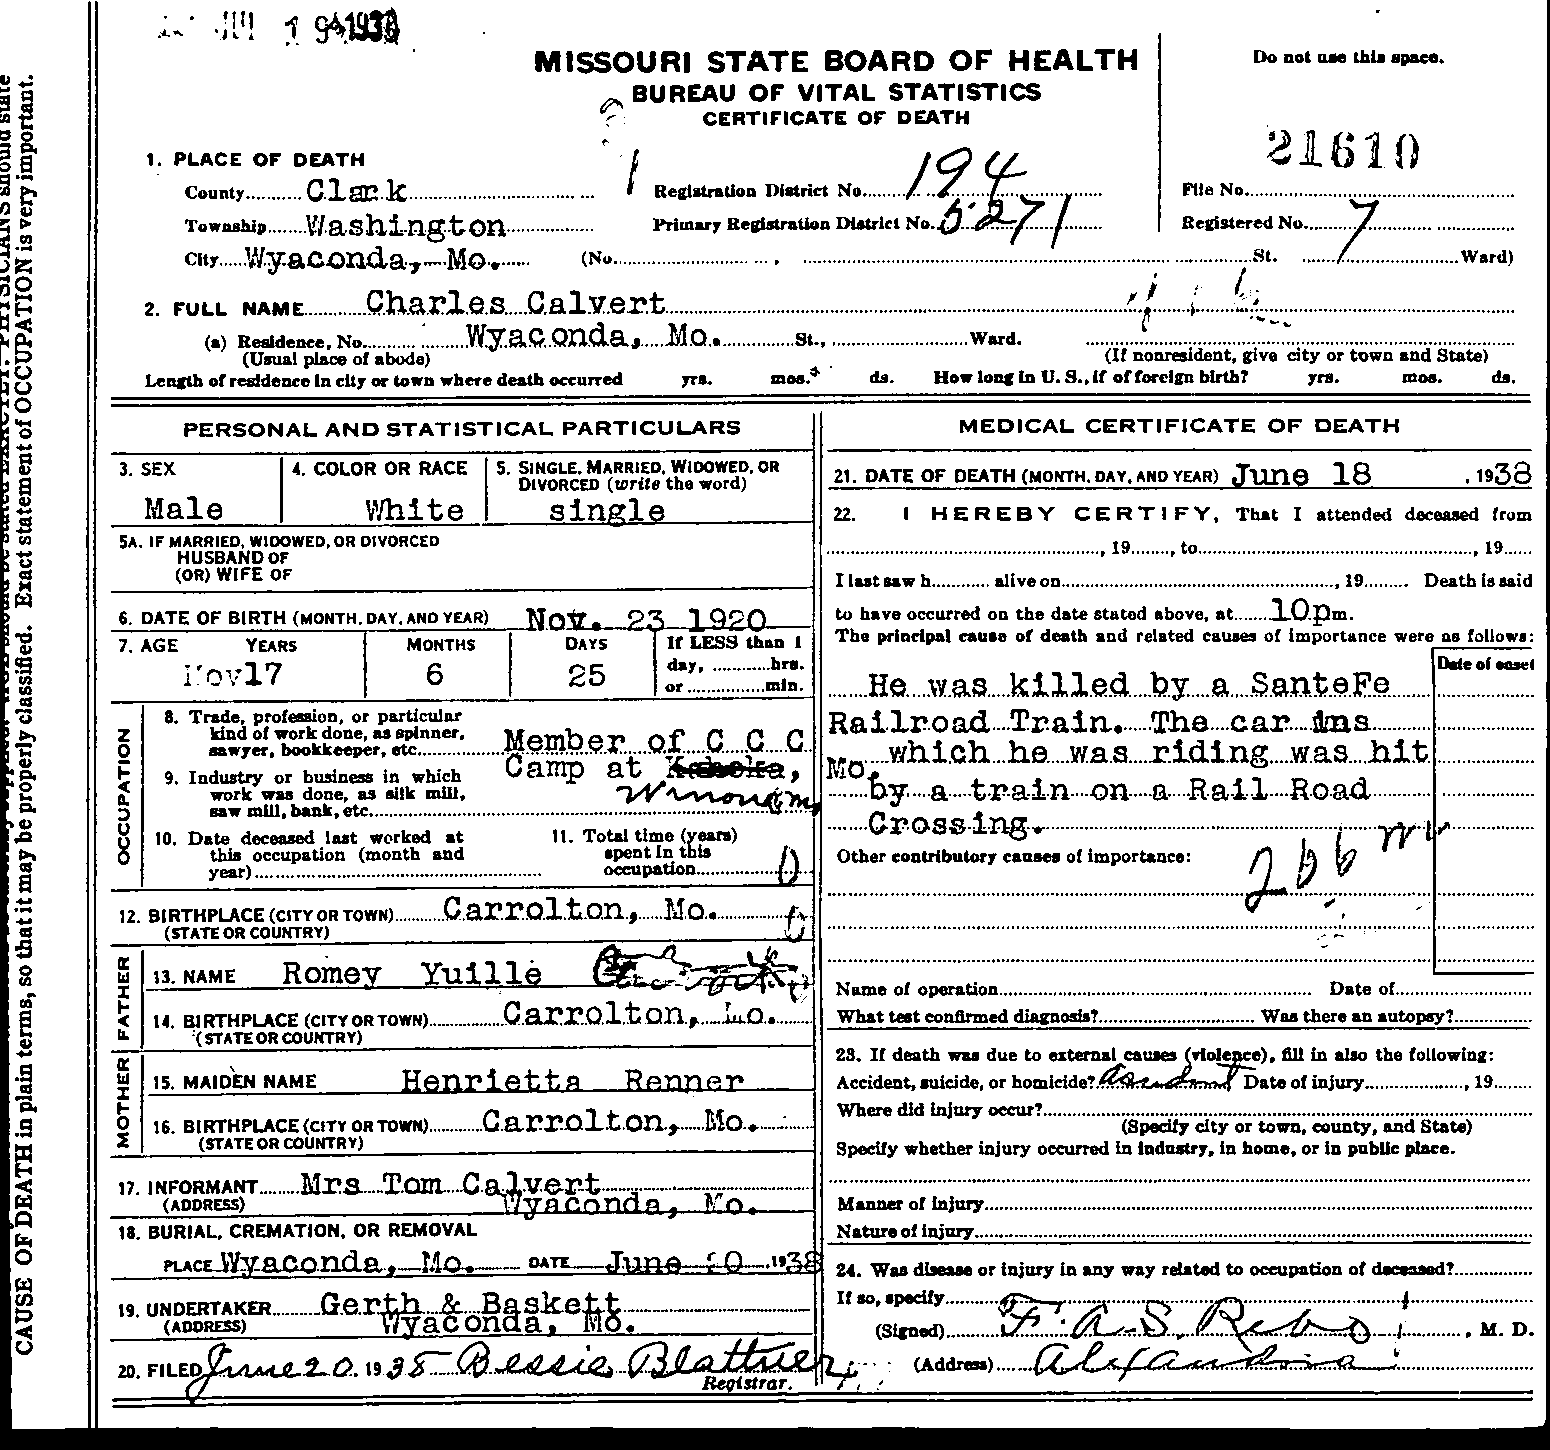 JUL 19 1938
MISSOURI STATE BOARD OF HEALTH
BUREAU OF VITAL STATISTICS
CERTIFICATE OF DEATH
Do not use this space.
21610
1. PLACE OF DEATH
County Clark
Township Washington
City Wyaconda, Mo. (No. , St. Ward)
1
Registration District No. 194
Primary Registration District No. 5271
File No.
Registered No. 7
2. FULL NAME Charles Calvert
(a) Residence, No. Wyaconda, Mo. St., Ward.
(Usual place of abode)
(If nonresident, give city or town and State)
Length of residence in city or town where death occurred yrs. mos. ds. How long in U. S., if of foreign birth? yrs. mos. ds.
PERSONAL AND STATISTICAL PARTICULARS
3. SEX
Male
4. COLOR OR RACE
White
5. SINGLE, MARRIED, WIDOWED, OR
DIVORCED (write the word)
single
5A. IF MARRIED, WIDOWED, OR DIVORCED
HUSBAND OF
(OR) WIFE OF
6. DATE OF BIRTH (MONTH, DAY, AND YEAR) Nov. 23 1920
7. AGE YEARS MONTHS DAYS If LESS than 1
day, hrs.
or min.
Nov17 6 25
OCCUPATION
8. Trade, profession, or particular
kind of work done, as spinner,
sawyer, bookkeeper, etc. Member of C C C
9. Industry or business in which
work was done, as silk mill,
saw mill, bank, etc.
Camp at Kahoka, Mo.
10. Date deceased last worked at
this occupation (month and
year)
11. Total time (years)
spent in this
occupation 0
12. BIRTHPLACE (CITY OR TOWN) Carrolton, Mo. 0
(STATE OR COUNTRY)
FATHER
13. NAME Romey Yuille
14. BIRTHPLACE (CITY OR TOWN) Carrolton, Mo.
(STATE OR COUNTRY)
MOTHER
15. MAIDEN NAME Henrietta Renner
16. BIRTHPLACE (CITY OR TOWN) Carrolton, Mo.
(STATE OR COUNTRY)
17. INFORMANT Mrs Tom Calvert
(ADDRESS) Wyaconda, Mo.
18. BURIAL, CREMATION, OR REMOVAL
PLACE Wyaconda, Mo. DATE June 20, 1938
19. UNDERTAKER Gerth & Baskett
(ADDRESS) Wyaconda, Mo.
20. FILED June 20, 1938 Bessie Blattner
Registrar.
MEDICAL CERTIFICATE OF DEATH
21. DATE OF DEATH (MONTH, DAY, AND YEAR) June 18 , 1938
22. I HEREBY CERTIFY, That I attended deceased from
, 19 , to , 19
I last saw h alive on , 19 Death is said
to have occurred on the date stated above, at 10pm.
The principal cause of death and related causes of importance were as follows:
Date of onset
He was killed by a SanteFe
Railroad Train. The car ins
which he was riding was hit
by a train on a Rail Road
Crossing.
Other contributory causes of importance:
206
Name of operation Date of
What test confirmed diagnosis? Was there an autopsy?
23. If death was due to external causes (violence), fill in also the following:
Accident, suicide, or homicide? Accident Date of injury , 19
Where did injury occur?
(Specify city or town, county, and State)
Specify whether injury occurred in industry, in home, or in public place.
Manner of injury
Nature of injury
24. Was disease or injury in any way related to occupation of deceased?
If so, specify
(Signed) F. A. S. Rebo , M. D.
(Address) Alexandria
CAUSE OF DEATH in plain terms, so that it may be properly classified. Exact statement of OCCUPATION is very important.